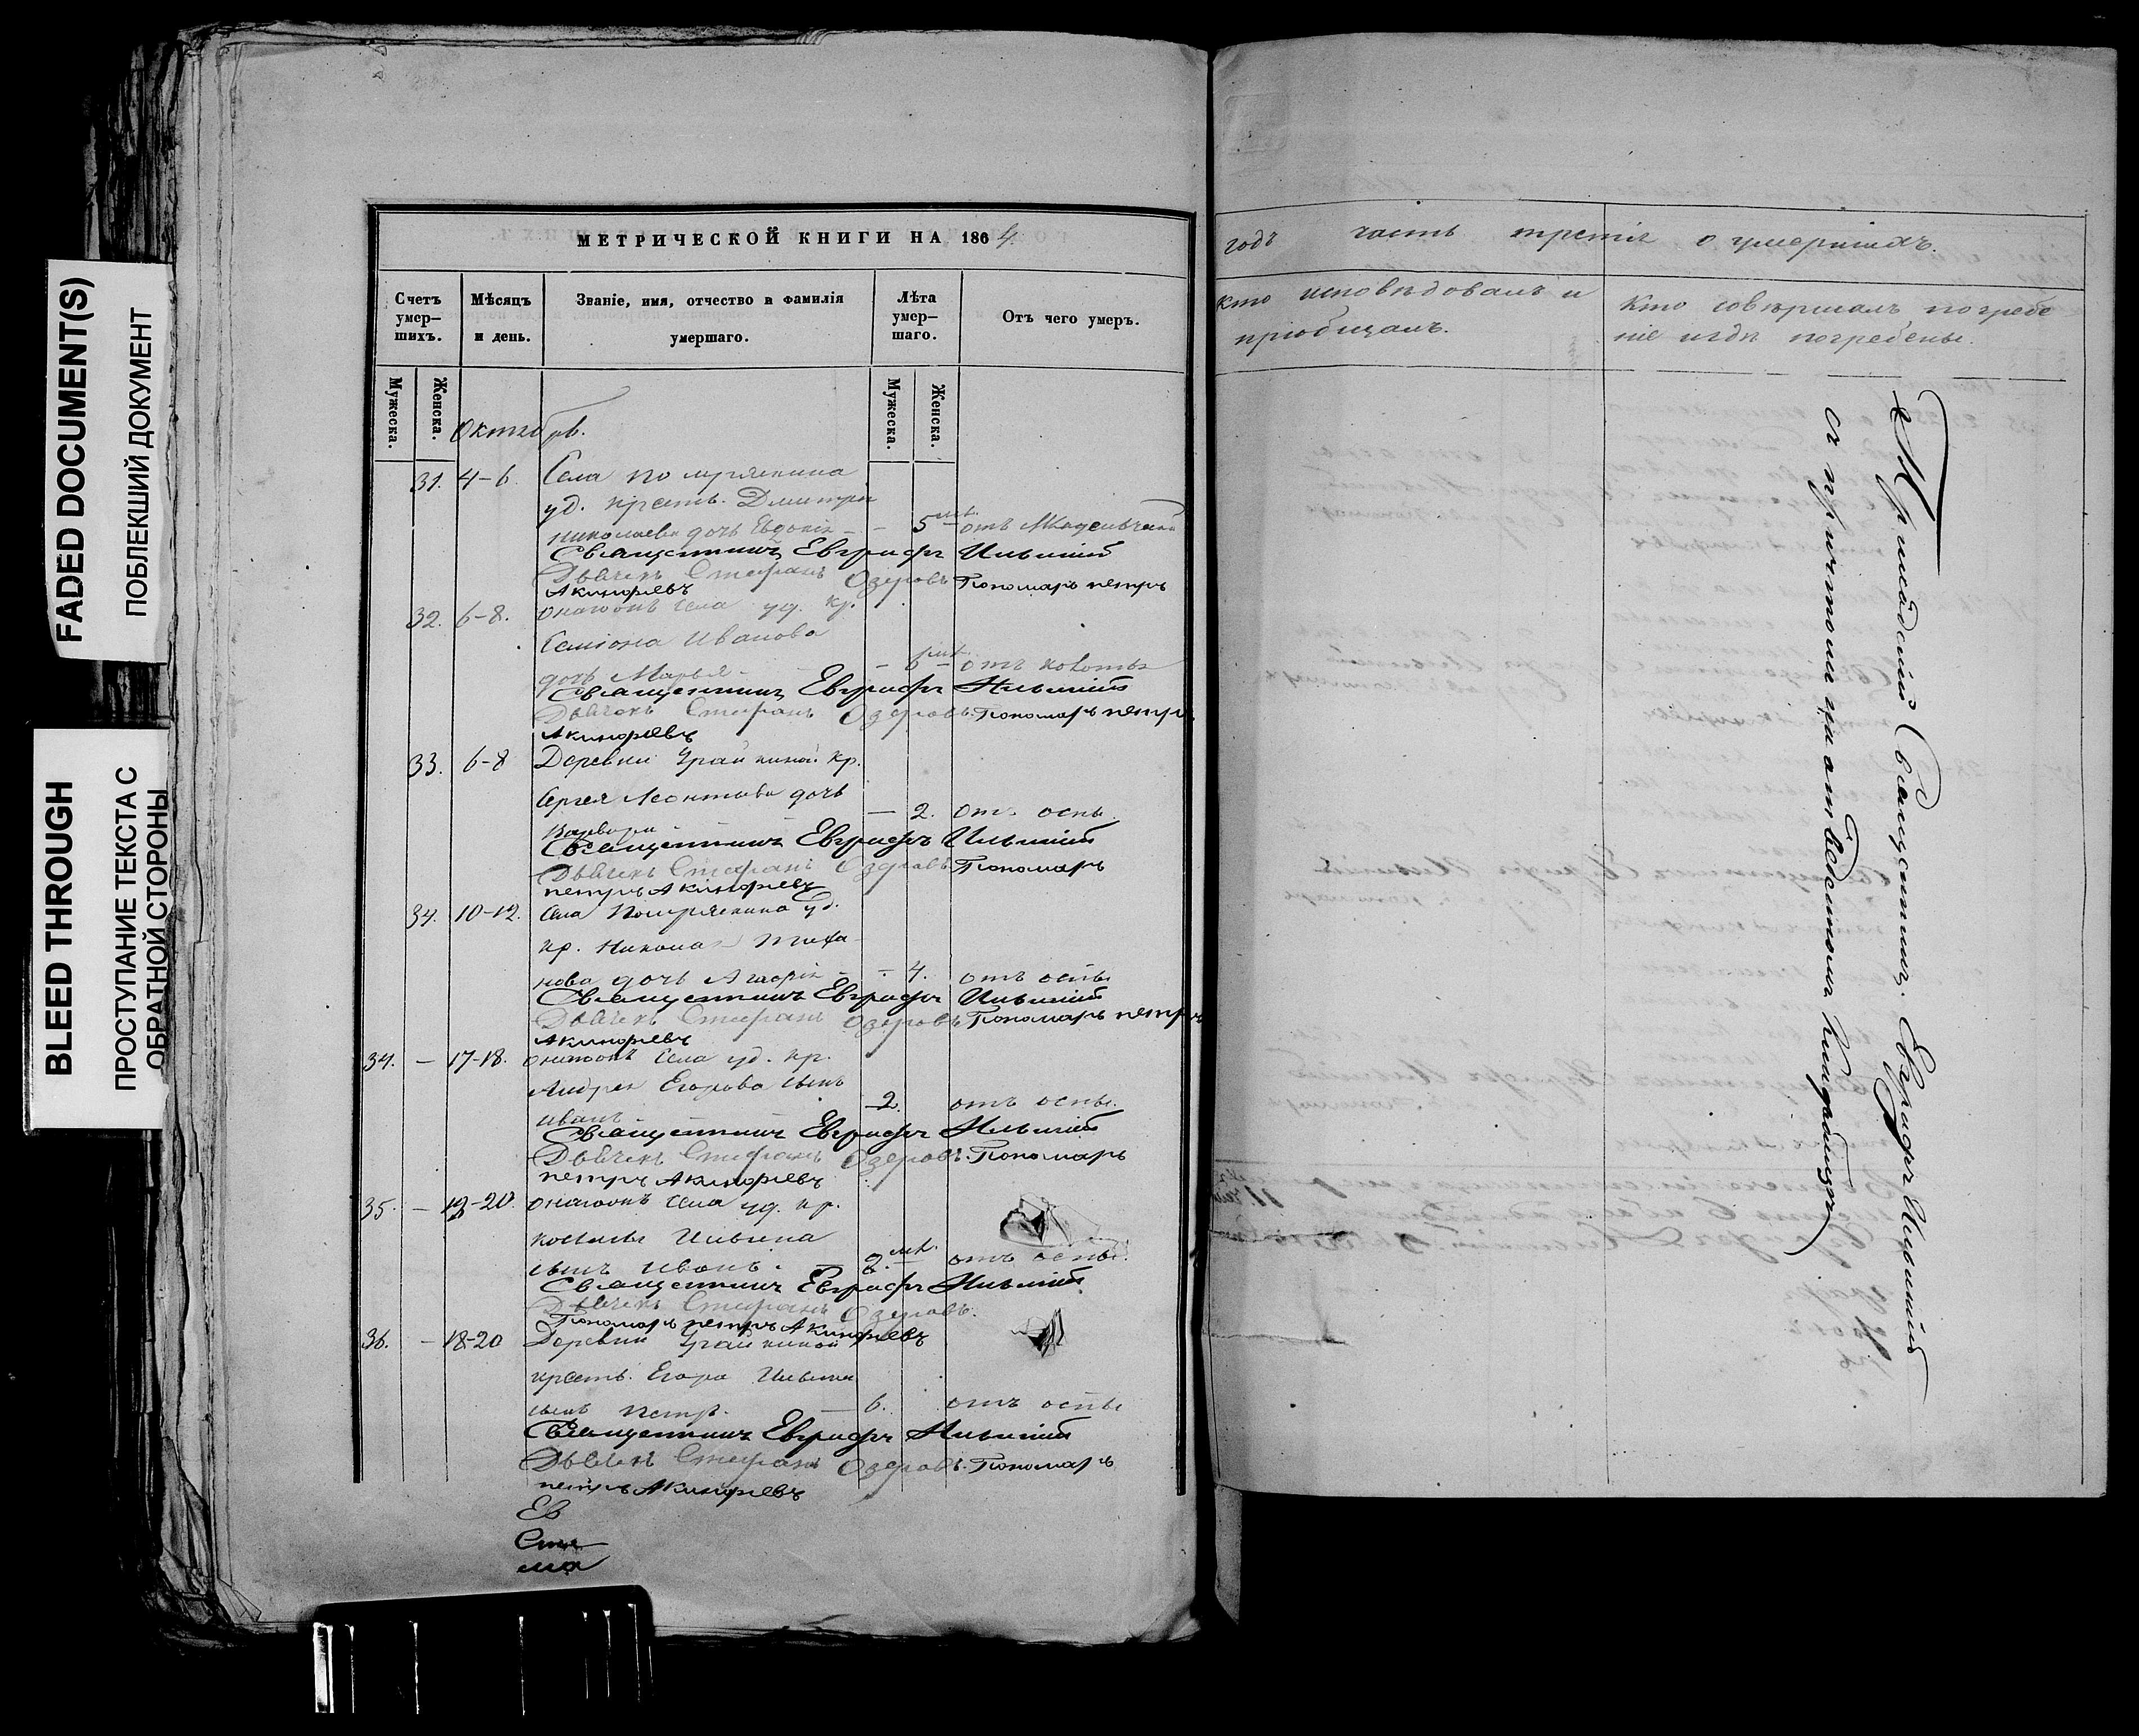 FADED DOCUMENT(S)
ПОБЛЕКШИЙ ДОКУМЕНТ
BLEED THROUGH
ПРОСТУПАНИЕ ТЕКСТА С
ОБРАТНОЙ СТОРОНЫ
МЕТРИЧЕСКОЙ КНИГИ НА 1864
Счетъ умер-шихъ.
Мѣсяцъ и день.
Званіе, имя, отчество и фамилія умершаго.
Лѣта умер-шаго.
Отъ чего умеръ.
Мужеска.
Женска.
Мужеска.
Женска.
Октября.
31. 4-6. Села
уд. крест. Дмитрія
Николаева дочь Евдокія - - 5 отъ
Священникъ Евграфъ Ильинскій
Дьячекъ Стефанъ Озеровъ Пономарь петръ
Акинфіевъ
32. 6-8. Онагожъ Села уд. кр.
Семіона Иванова
дочь Марья - - 6 отъ
Священникъ Евграфъ Ильинскій
Дьячекъ Стефанъ Озеровъ. Пономарь петръ
Акинфіевъ
33. 6-8 Деревни кр.
Сергея Леонтьева дочь
Варвара - 2. от. оспы.
Священникъ Евграфъ Ильинскій
Дьячекъ Стефанъ Озеровъ Пономарь
петръ Акинфіевъ
34. 10-12. Села уд.
кр. Николая
дочь - - 4. отъ оспы
Священникъ Евграфъ Ильинскій
Дьячекъ Стефанъ Озеровъ Пономарь петръ
Акинфіевъ
34. - 17-18. онагожъ Села уд. кр.
Андрея Егорова сынъ
иванъ - 2. отъ оспы.
Священникъ Евграфъ Ильинскій
Дьячекъ Стефанъ Озеровъ. Пономарь
петръ Акинфіевъ
35. - -20. онагожъ Села уд. кр.
Ильина
сынъ Иванъ. - 2. отъ оспы.
Священникъ Евграфъ Ильинскій
Дьячекъ Стефанъ Озеровъ.
Пономарь петръ Акинфіевъ
36. - 18-20 Деревни
крест. Егора Ильина
сынъ петръ. - 6. отъ оспы
Священникъ Евграфъ Ильинскій
Дьячекъ Стефанъ Озеровъ. Пономарь
петръ Акинфіевъ
Ев
годъ часть третія о умершихъ.
кто исповѣдовалъ и
приобщалъ.
Кто совершалъ погребе
ніе и гдѣ погребены.
Приходскій Священникъ Евграфъ Ильинскій
съ причтомъ